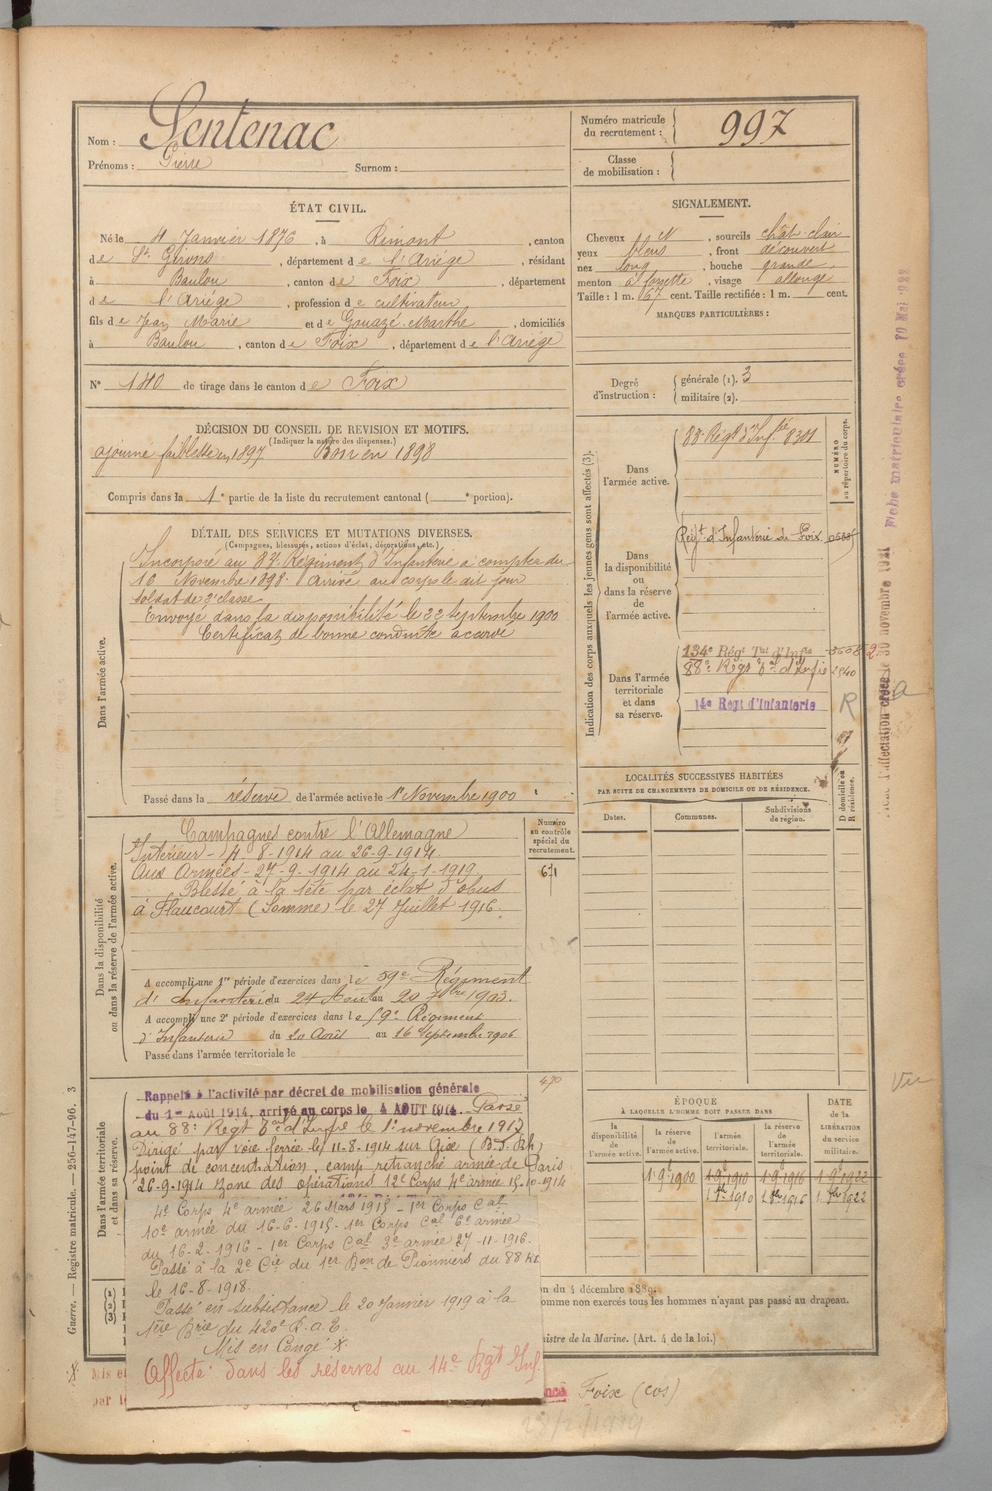 Nom : Sentenac
Prénoms : Pierre Surnom :
Numéro matricule du recrutement : 997
Classe de mobilisation :
ÉTAT CIVIL.
Né le 4 Janvier 1876, à Rimont, canton
de St. Girons, département de l'Ariège, résidant
à Baulou, canton de Foix, département
de l'Ariège, profession de cultivateur
fils de Jean Marie et de Gouazé Marthe, domiciliés
à Baulou, canton de Foix, département de l'Ariège
N° 140 de tirage dans le canton de Foix
SIGNALEMENT.
Cheveux, sourcils chât. clair
yeux bleus, front découvert
nez long, bouche grande
menton à fossette, visage allongé
Taille : 1 m. 67 cent. Taille rectifiée : 1 m. cent.
MARQUES PARTICULIÈRES :
Degré d'instruction : générale (1). 3
militaire (2).
DÉCISION DU CONSEIL DE REVISION ET MOTIFS.
(Indiquer la nature des dispenses.)
ajourné faiblesse en 1897 Bon en 1898
Compris dans la 1e partie de la liste du recrutement cantonal ( e portion).
DÉTAIL DES SERVICES ET MUTATIONS DIVERSES.
(Campagnes, blessures, actions d'éclat, décorations, etc.)
Dans l'armée active.
Incorporé au 88e Régiment d'Infanterie à compter du
16 Novembre 1898. Arrivé au corps le dit jour
soldat de 2e classe
Envoyé dans la disponibilité le 22 Septembre 1900
Certificat de bonne conduite accordé
Passé dans la réserve de l'armée active le 1er Novembre 1900
Dans la disponibilité ou dans la réserve de l'armée active.
Campagnes contre l'Allemagne
Intérieur - 4-8-1914 au 26-9-1914.
Aux Armées - 27-9-1914 au 24-1-1919
Blessé à la tête par éclat d'obus
à Flaucourt (Somme) le 27 Juillet 1916.
Numéro au contrôle spécial du recrutement.
671
A accompli une 1re période d'exercices dans le 59e Régiment
d'Infanterie du 24 Août au 20 7bre 1903.
A accompli une 2e période d'exercices dans le 59e Régiment
d'Infanterie du 20 Août au 16 Septembre 1906
Passé dans l'armée territoriale le
Dans l'armée territoriale et dans sa réserve.
470
Rappelé à l'activité par décret de mobilisation générale
du 1er Août 1914, arrivé au corps le 4 AOUT 1914. Passé
au 88e Regt Tal d'Infie le 1er novembre 1917
Dirigé par voie ferrée le 11-8-1914 sur Gise
point de concentration, camp retranché armée de Paris
26-9-1914 zone des opérations 12e Corps 4e armée 15-10-1914
4e Corps 4e armée 26 Mars 1915 - 1er Corps Cal
10e armée du 16-6-1915 - 1er Corps Cal 6e armée
du 16-2-1916 - 1er Corps Cal 3e armée 27-11-1916.
Passé à la 2e Cie du 1er Bon de Pionniers du 88 RIT
le 16-8-1918.
Passé en subsistance le 20 Janvier 1919 à la
1ère Brie du 420e R.A.L.
Mis en Congé X.
Affecté dans les réserves au 14e Rgt Inf.
X Mis e
par l
Foix (cos)
28/2/1919
Indication des corps auxquels les jeunes gens sont affectés (3).
NUMÉRO au répertoire du corps.
Dans l'armée active.
88e Régt d'Infie 8301
Dans la disponibilité ou dans la réserve de l'armée active.
Régt. d'Infanterie de Foix
Dans l'armée territoriale et dans sa réserve.
134e Régt Tal d'Infie
88e Régt Tal d'Infie 2540
14e Regt d'Infanterie
R
LOCALITÉS SUCCESSIVES HABITÉES
PAR SUITE DE CHANGEMENTS DE DOMICILE OU DE RÉSIDENCE.
Dates. Communes. Subdivisions de région. D domicile ou R résidence.
ÉPOQUE
À LAQUELLE L'HOMME DOIT PASSER DANS
la disponibilité de l'armée active. la réserve de l'armée active. l'armée territoriale. la réserve de l'armée territoriale.
DATE de la LIBÉRATION du service militaire.
1-9-1900 1-9-1910 1-9-1916 1-9-1922
1-8bre-1910 1-8bre-1916 1-8bre-1922
on du 4 décembre 1889.
omme non exercés tous les hommes n'ayant pas passé au drapeau.
nistre de la Marine. (Art. 4 de la loi.)
Guerre. — Registre matricule. — 256-147-96. 3
Fiche matriculaire créée 10 Mai 1922
d'affectation créée le 30 novembre 1921
Vu